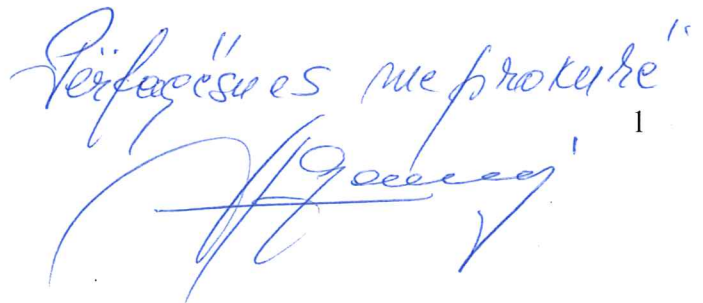 Përfaqësues me prokurë
1